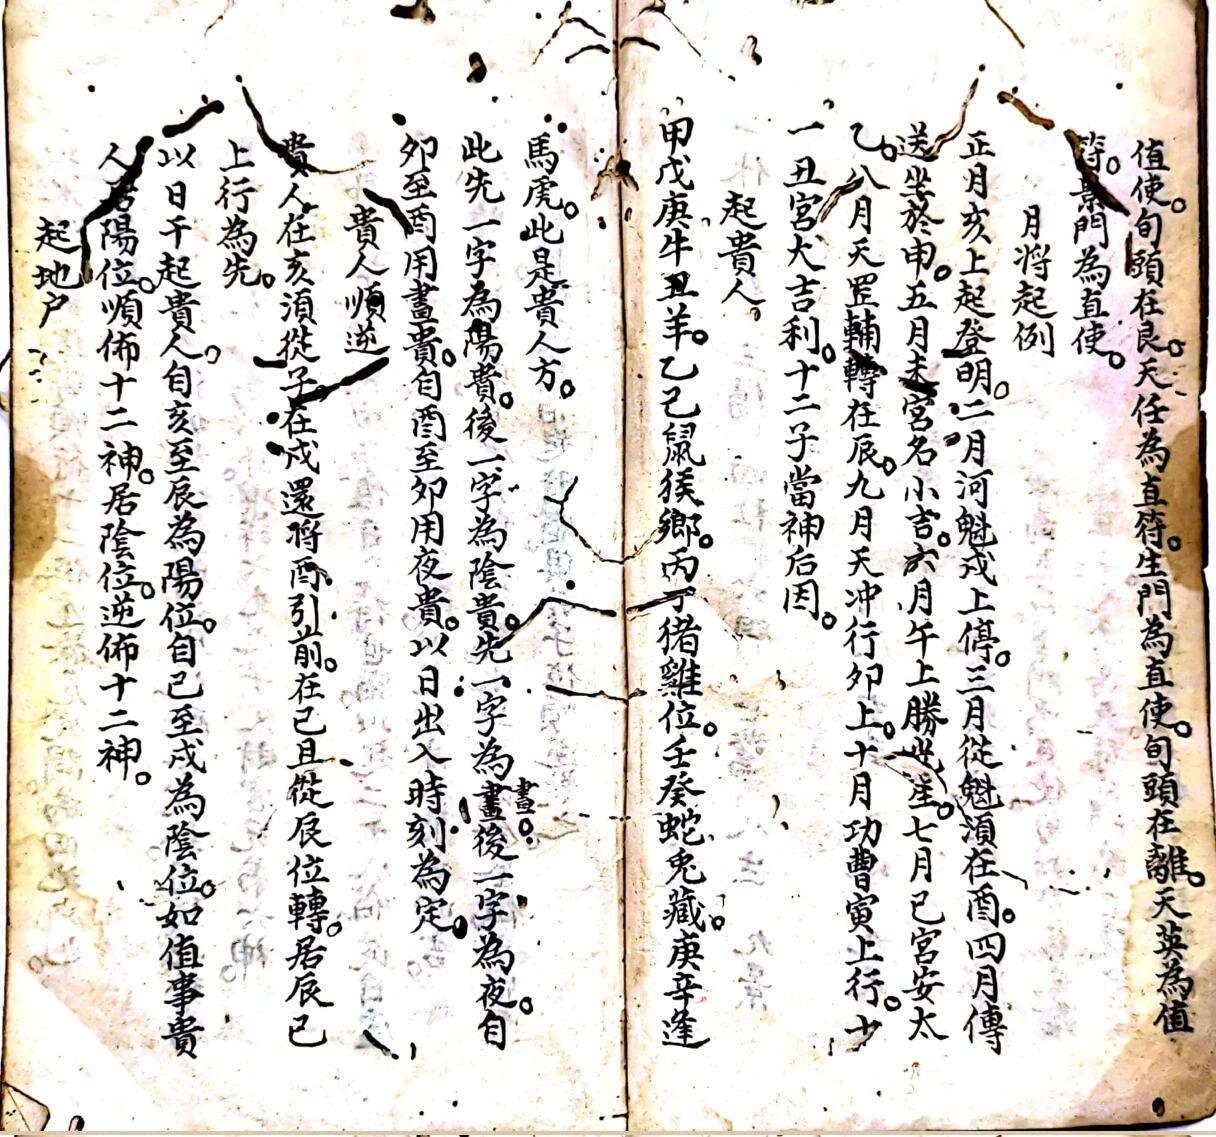 值使。旬頭在艮。天任為直符。生門為直使。旬頭在離。天英為值
符。景門為直使。
月將起例
正月亥上起登明。二月河魁戌上停。三月從魁須在酉。四月傳
送坐於申。五月未宮名小吉。六月午上勝光注。七月巳宮安太
乙。八月天罡輔轉在辰。九月天冲行卯上。十月功曹寅上行。十
一丑宮大吉利。十二子當神后因。
起貴人
甲戊庚牛丑羊。乙己鼠猴鄉。丙丁猪雞位。壬癸蛇兔藏。庚辛逢
馬虎。此是貴人方。
此先一字為陽貴。後一字為陰貴。先一字為畫晝。後一字為夜。自
卯至酉用晝貴。自酉至卯用夜貴。以日出入時刻為定。
貴人順逆
貴人在亥須從子在戌還將酉引前。在巳且從辰位轉。居辰巳
上行為先。
以日干起貴人。自亥至辰為陽位。自巳至戌為陰位。如值事貴
人居陽位。順佈十二神。居陰位。逆佈十二神。
起地户